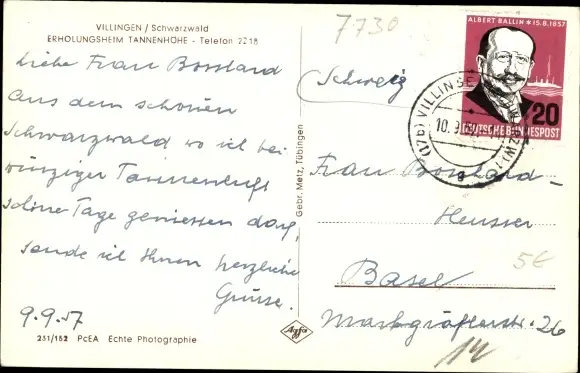 VILLINGEN / Schwarzwald
ERHOLUNGSHEIM TANNENHÖHE - Telefon 2218
Liebe Frau Bosshard
Aus dem schönen
Schwarzwald wo ich bei
würziger Tannenluft
schöne Tage geniessen darf,
sende ich Ihnen herzliche
Grüsse.
9.9.57
251/152 PcEA Echte Photographie
Gebr. Metz, Tübingen
Agfa
7730
ALBERT BALLIN * 15.8.1857
20
DEUTSCHE BUNDESPOST
(17b) VILLINGEN (SCHWARZW) 1
10.9.
a
Schweiz
Frau Bosshard-
Heusser
Basel
Markgräflerstr. 26
5€
14